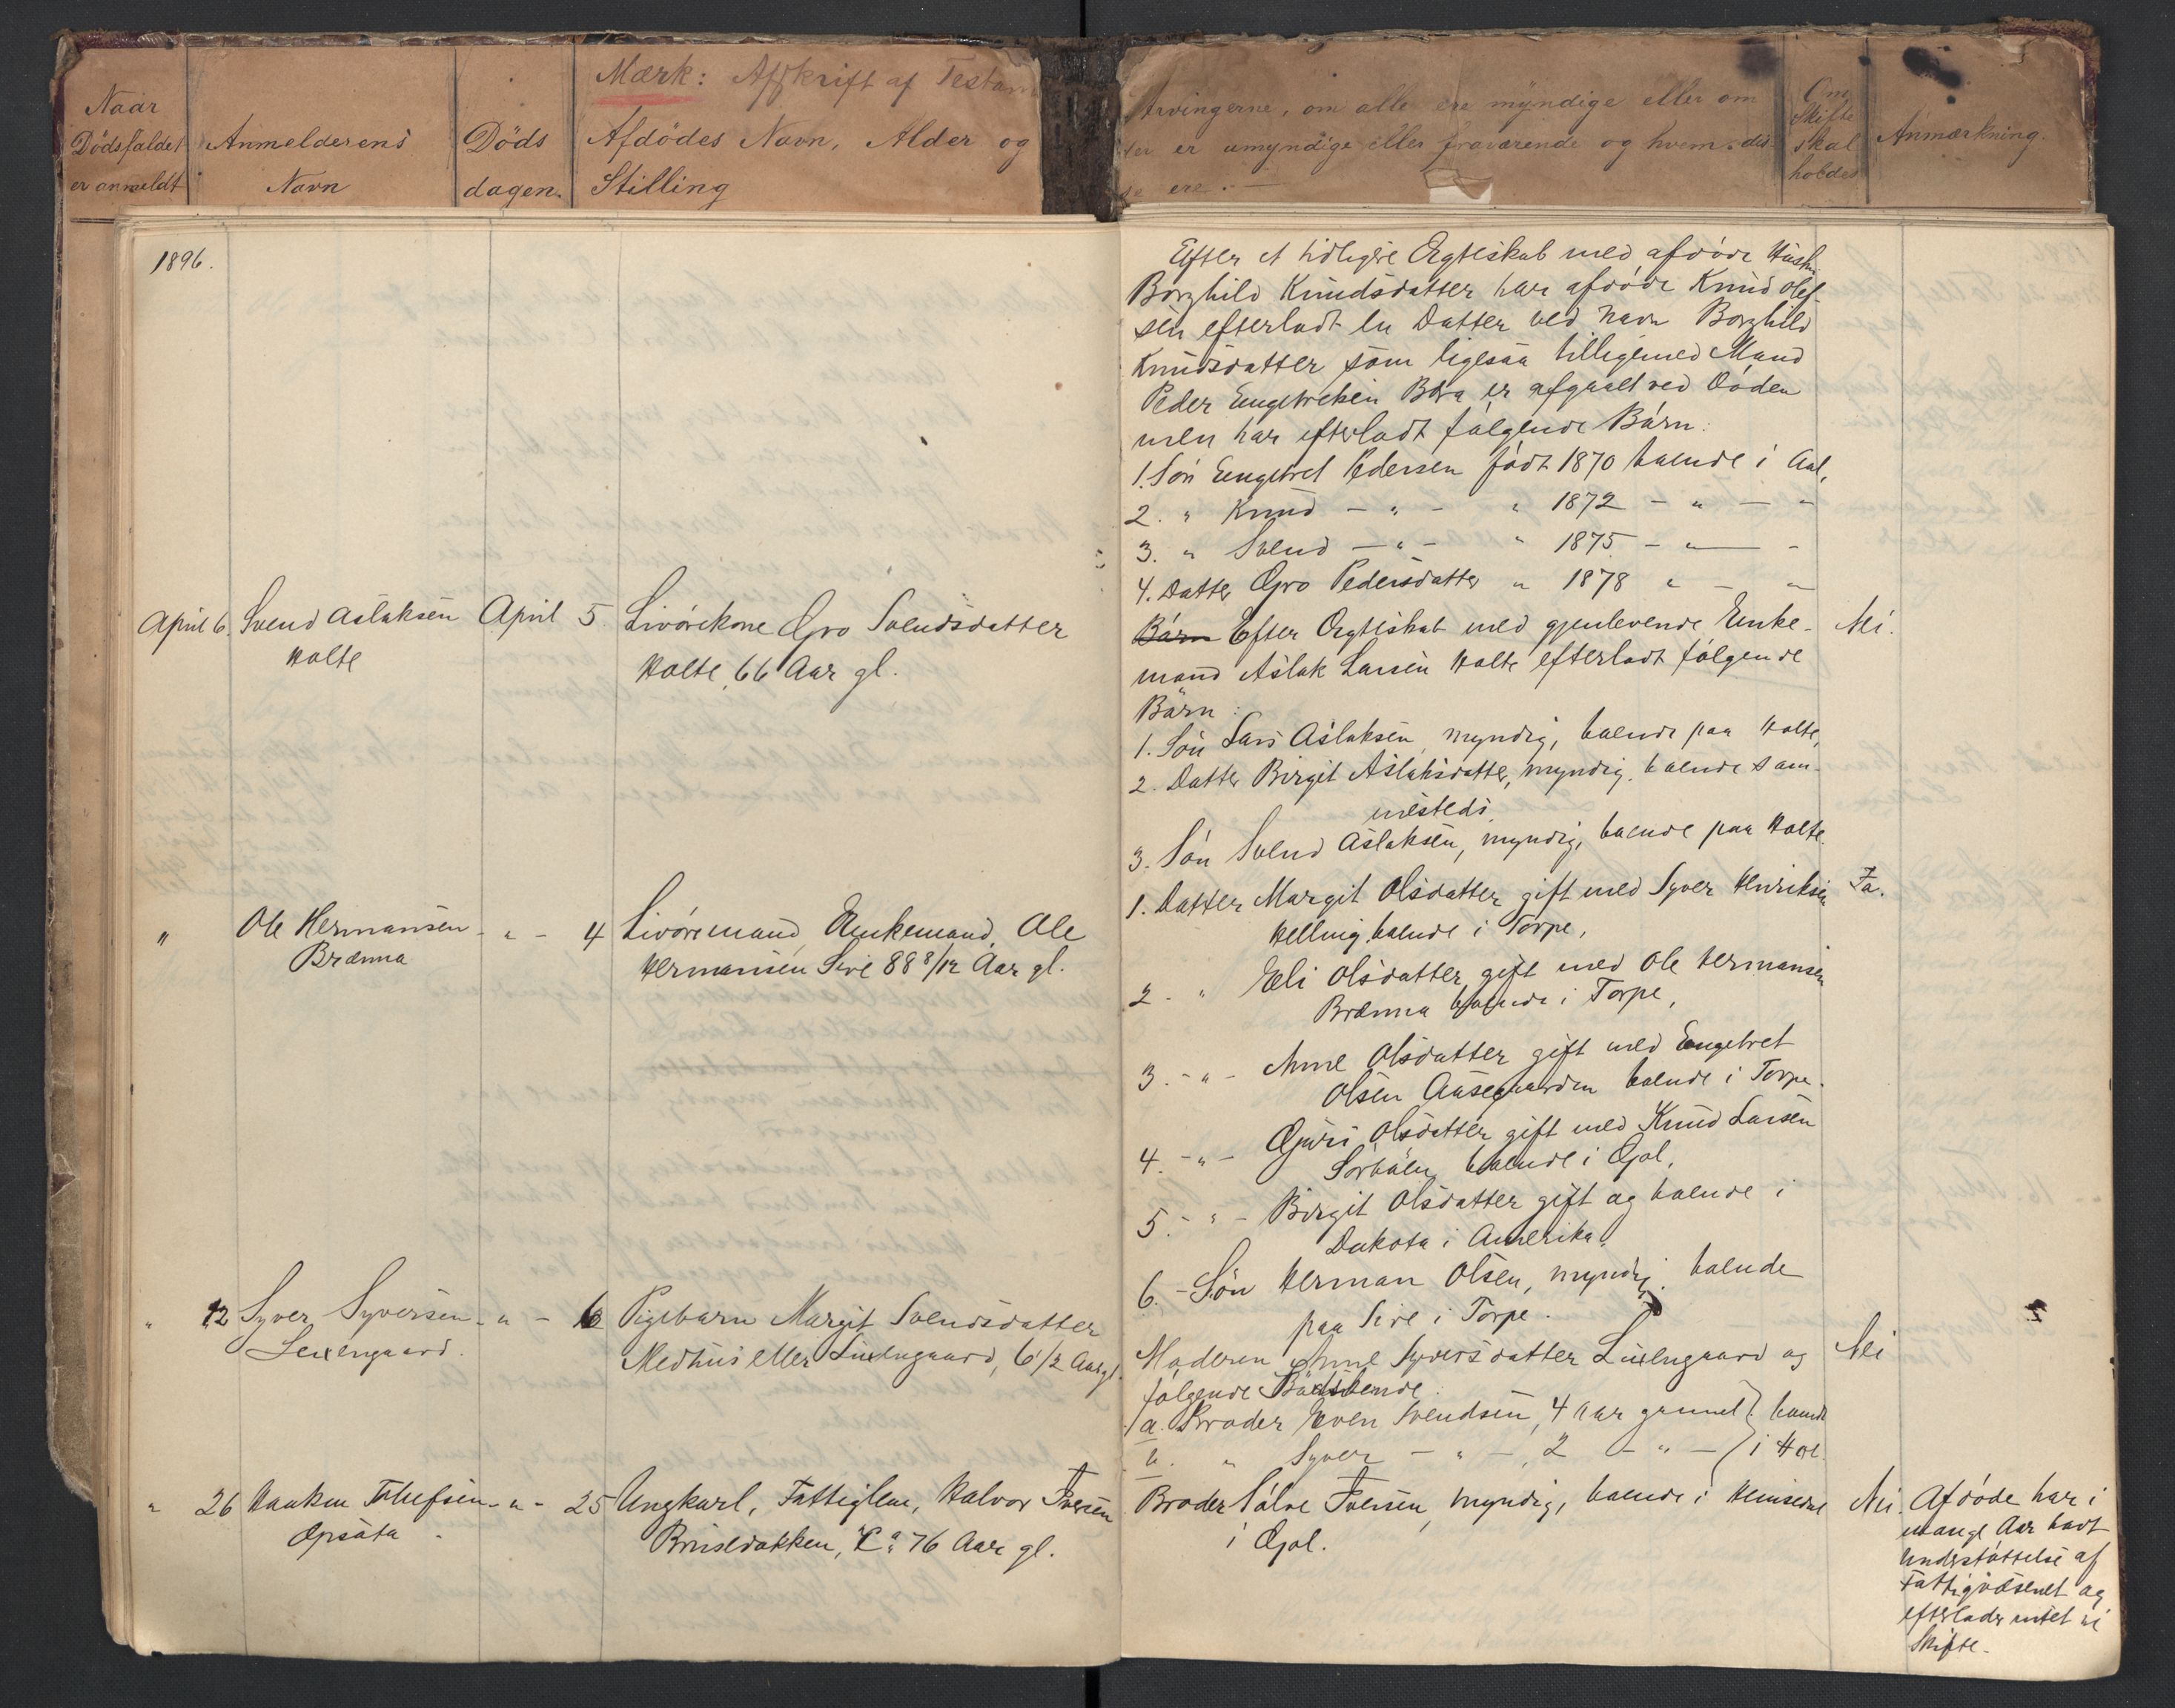 Naar
Dödsfaldet
er anmeldt
Anmelderens
Navn
Döds
dagen.
Mærk: Afskrift af Testam
Afdödes Navn, Alder og
Stilling
Arvingerne, om alle ere myndige eller om
er umyndige eller fraværende og hvem dis
se ere. —
Om
Skifte
skal
holdes
Anmærkning.
1896.
April 6. Svend Aslaksen
Holte
April 5.
Livörekone Gro Svendsdatter
Holte, 66 Aar gl.
" Ole Hermansen
Brænna
- " - 4
Livöremand, Enkemand, Ole
Hermansen Sire 88 8/12 Aar gl.
" 12 Syver Syversen
- " - 6
Pigebarn Margit Svendsdatter
Medhus eller , 6 1/2 Aar gl.
" 26 Haaken Tolefsen
Opsata
- " - 25
Ungkarl, Fattiglem, Halvor Iversen
, Ca 76 Aar gl.
Efter et tidligere Ægteskab med afdöde Hustru
Borghild Knudsdatter har afdöde Knud Olef-
sen efterladt en Datter ved Navn Borghild
Knudsdatter som ligesaa tilligemed Mand
Peder Engebretsen er afgaaet ved Döden
men har efterladt fölgende Börn:
1. Sön Engebret Pedersen födt 1870 boende i Aal,
2. " Knud - " - " 1872 - " - "
3. " Svend - " - " 1875 - " -
4. Datter Gro Pedersdatter " 1878 " - "
Börn Efter Ægteskab med gjenlevende Enke-
mand Aslak Larsen Holte efterladt fölgende
Börn:
1. Sön Lars Aslaksen, myndig, boende paa Holte,
2. Datter Birgit Aslaksdatter, myndig, boende sam-
mesteds,
3. Sön Svend Aslaksen, myndig, boende paa Holte.
Nei.
1. Datter Margit Olsdatter gift med Syver Henriksen
Helling boende i Torpe,
2. " Eli Olsdatter, gift med Ole Hermansen
Brænna boende i Torpe,
3. - " - Anne Olsdatter gift med Engebret
Olsen Aasegaarden boende i Torpe.
4. - " - Guri Olsdatter gift med Knud Larsen
boende i Gol,
5. - " - Birgit Olsdatter gift og boende i
Dakota i Amerika.
6. - Sön Herman Olsen, myndig, boende
paa Sire i Torpe.
Ja.
Moderen Anne Syversdatter og
fölgende Södskende:
a. Broder Even Svendsen, 4 Aar gammel } boende
b. " Syver - " -, 2 - " - } i Hol.
Nei
Broder Sölve Iversen, myndig, boende i Hemsedal
i Gol.
Nei.
Afdöde har i
mange Aar havt
Understöttelse af
Fattigvæsenet og
efterlader intet at
Skifte.